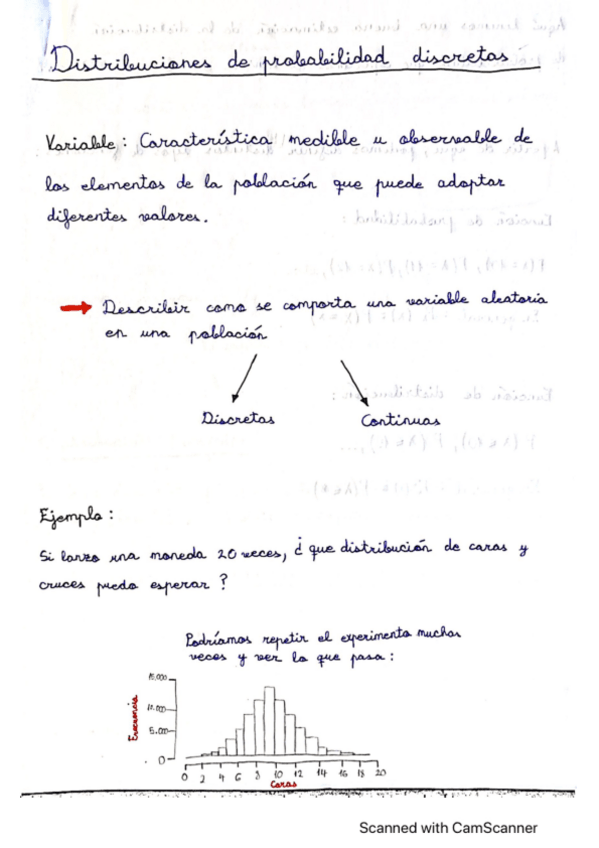 Distribuciones de probabilidad discretas
Variable: Característica medible u observable de
los elementos de la población que puede adoptar
diferentes valores.
Describir como se comporta una variable aleatoria
en una población
Discretas Continuas
Ejemplo:
Si lanzo una moneda 20 veces, ¿que distribución de caras y
cruces puedo esperar?
Podríamos repetir el experimento muchas
veces y ver lo que pasa:
15.000
10.000
5.000
0
Frecuencia
0 2 4 6 8 10 12 14 16 18 20
Caras
Scanned with CamScanner